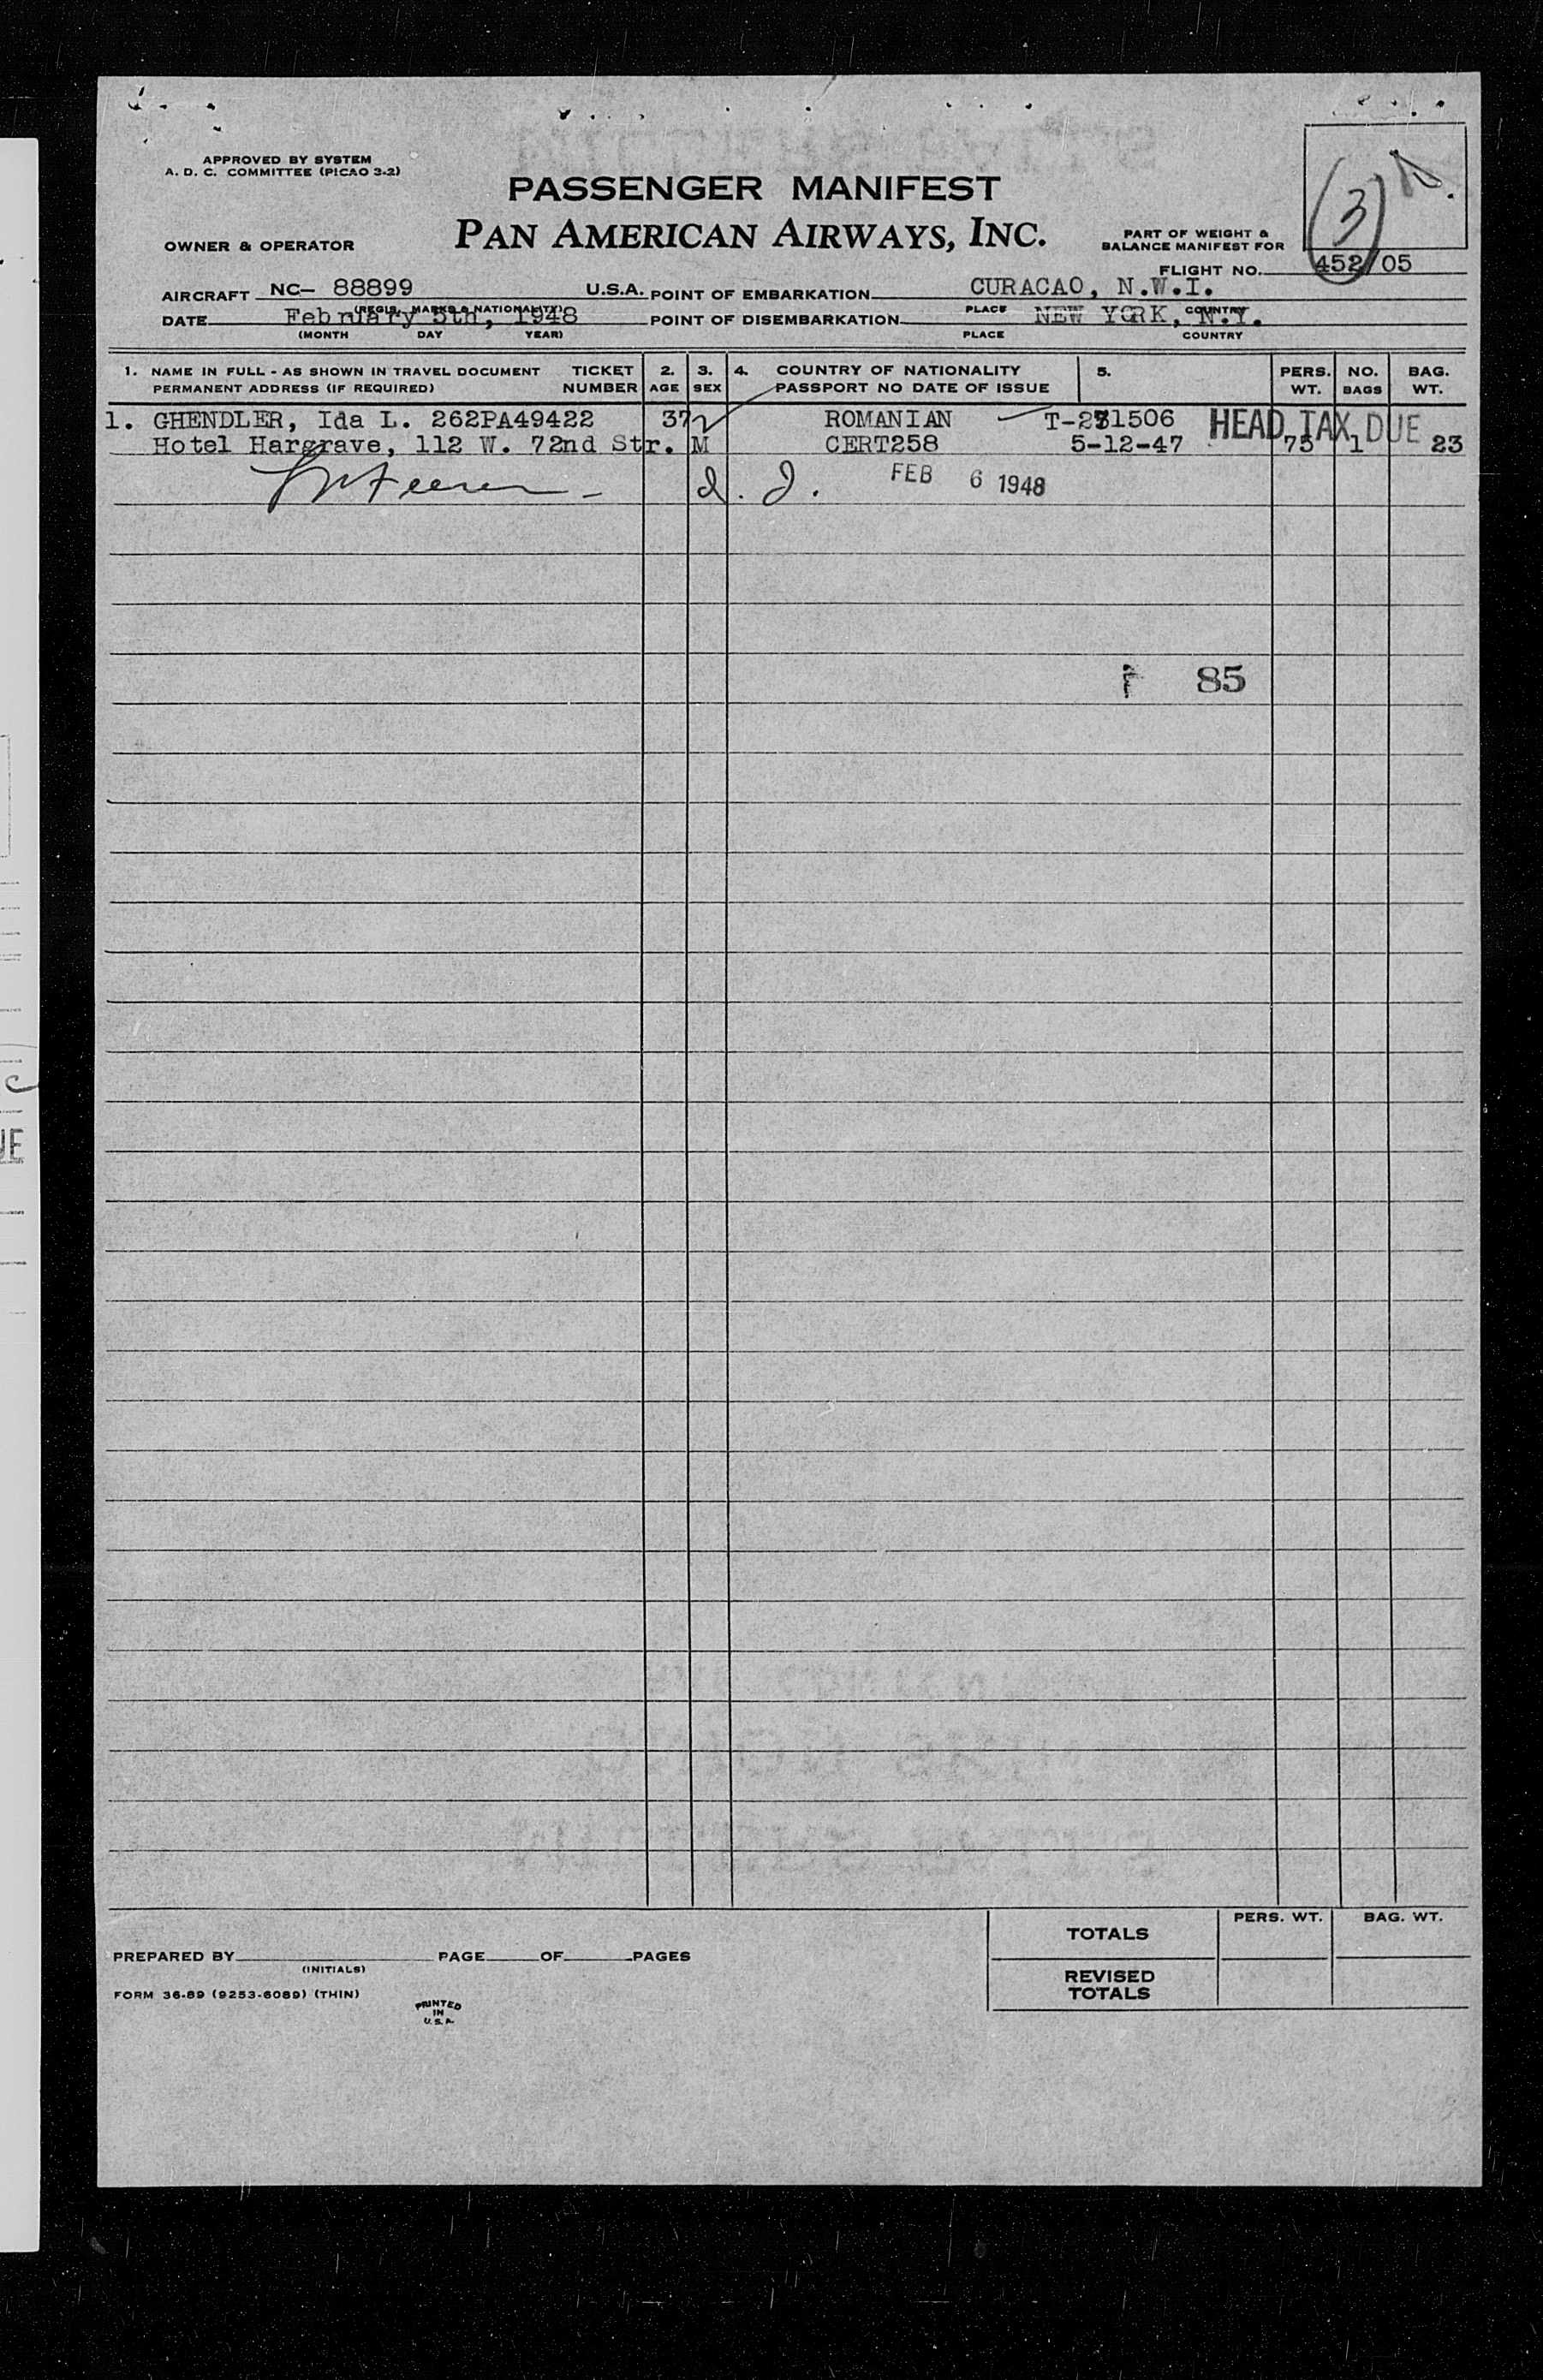 APPROVED BY SYSTEM
A. D. C. COMMITTEE (PICAO 3-2)
PASSENGER MANIFEST
PAN AMERICAN AIRWAYS, INC.
OWNER & OPERATOR
PART OF WEIGHT &
BALANCE MANIFEST FOR
(3)
FLIGHT NO. 452/05
AIRCRAFT NC- 88899 U.S.A. POINT OF EMBARKATION CURACAO, N.W.I.
(REGIS. MARKS & NATIONALITY) PLACE COUNTRY
DATE February 5th, 1948 POINT OF DISEMBARKATION NEW YORK, N.Y.
(MONTH DAY YEAR) PLACE COUNTRY
1. NAME IN FULL - AS SHOWN IN TRAVEL DOCUMENT TICKET 2. 3. 4. COUNTRY OF NATIONALITY 5. PERS. NO. BAG.
PERMANENT ADDRESS (IF REQUIRED) NUMBER AGE SEX PASSPORT NO DATE OF ISSUE WT. BAGS WT.
1. GHENDLER, Ida L. 262PA49422 37 ROMANIAN HEAD TAX DUE
Hotel Hargrave, 112 W. 72nd Str. M CERT258 5-12-47 75 1 23
FEB 6 1948
85
PREPARED BY PAGE OF PAGES
(INITIALS)
FORM 36-89 (9253-6089) (THIN)
PRINTED
IN
U. S. A.
PERS. WT. BAG. WT.
TOTALS
REVISED
TOTALS
UE